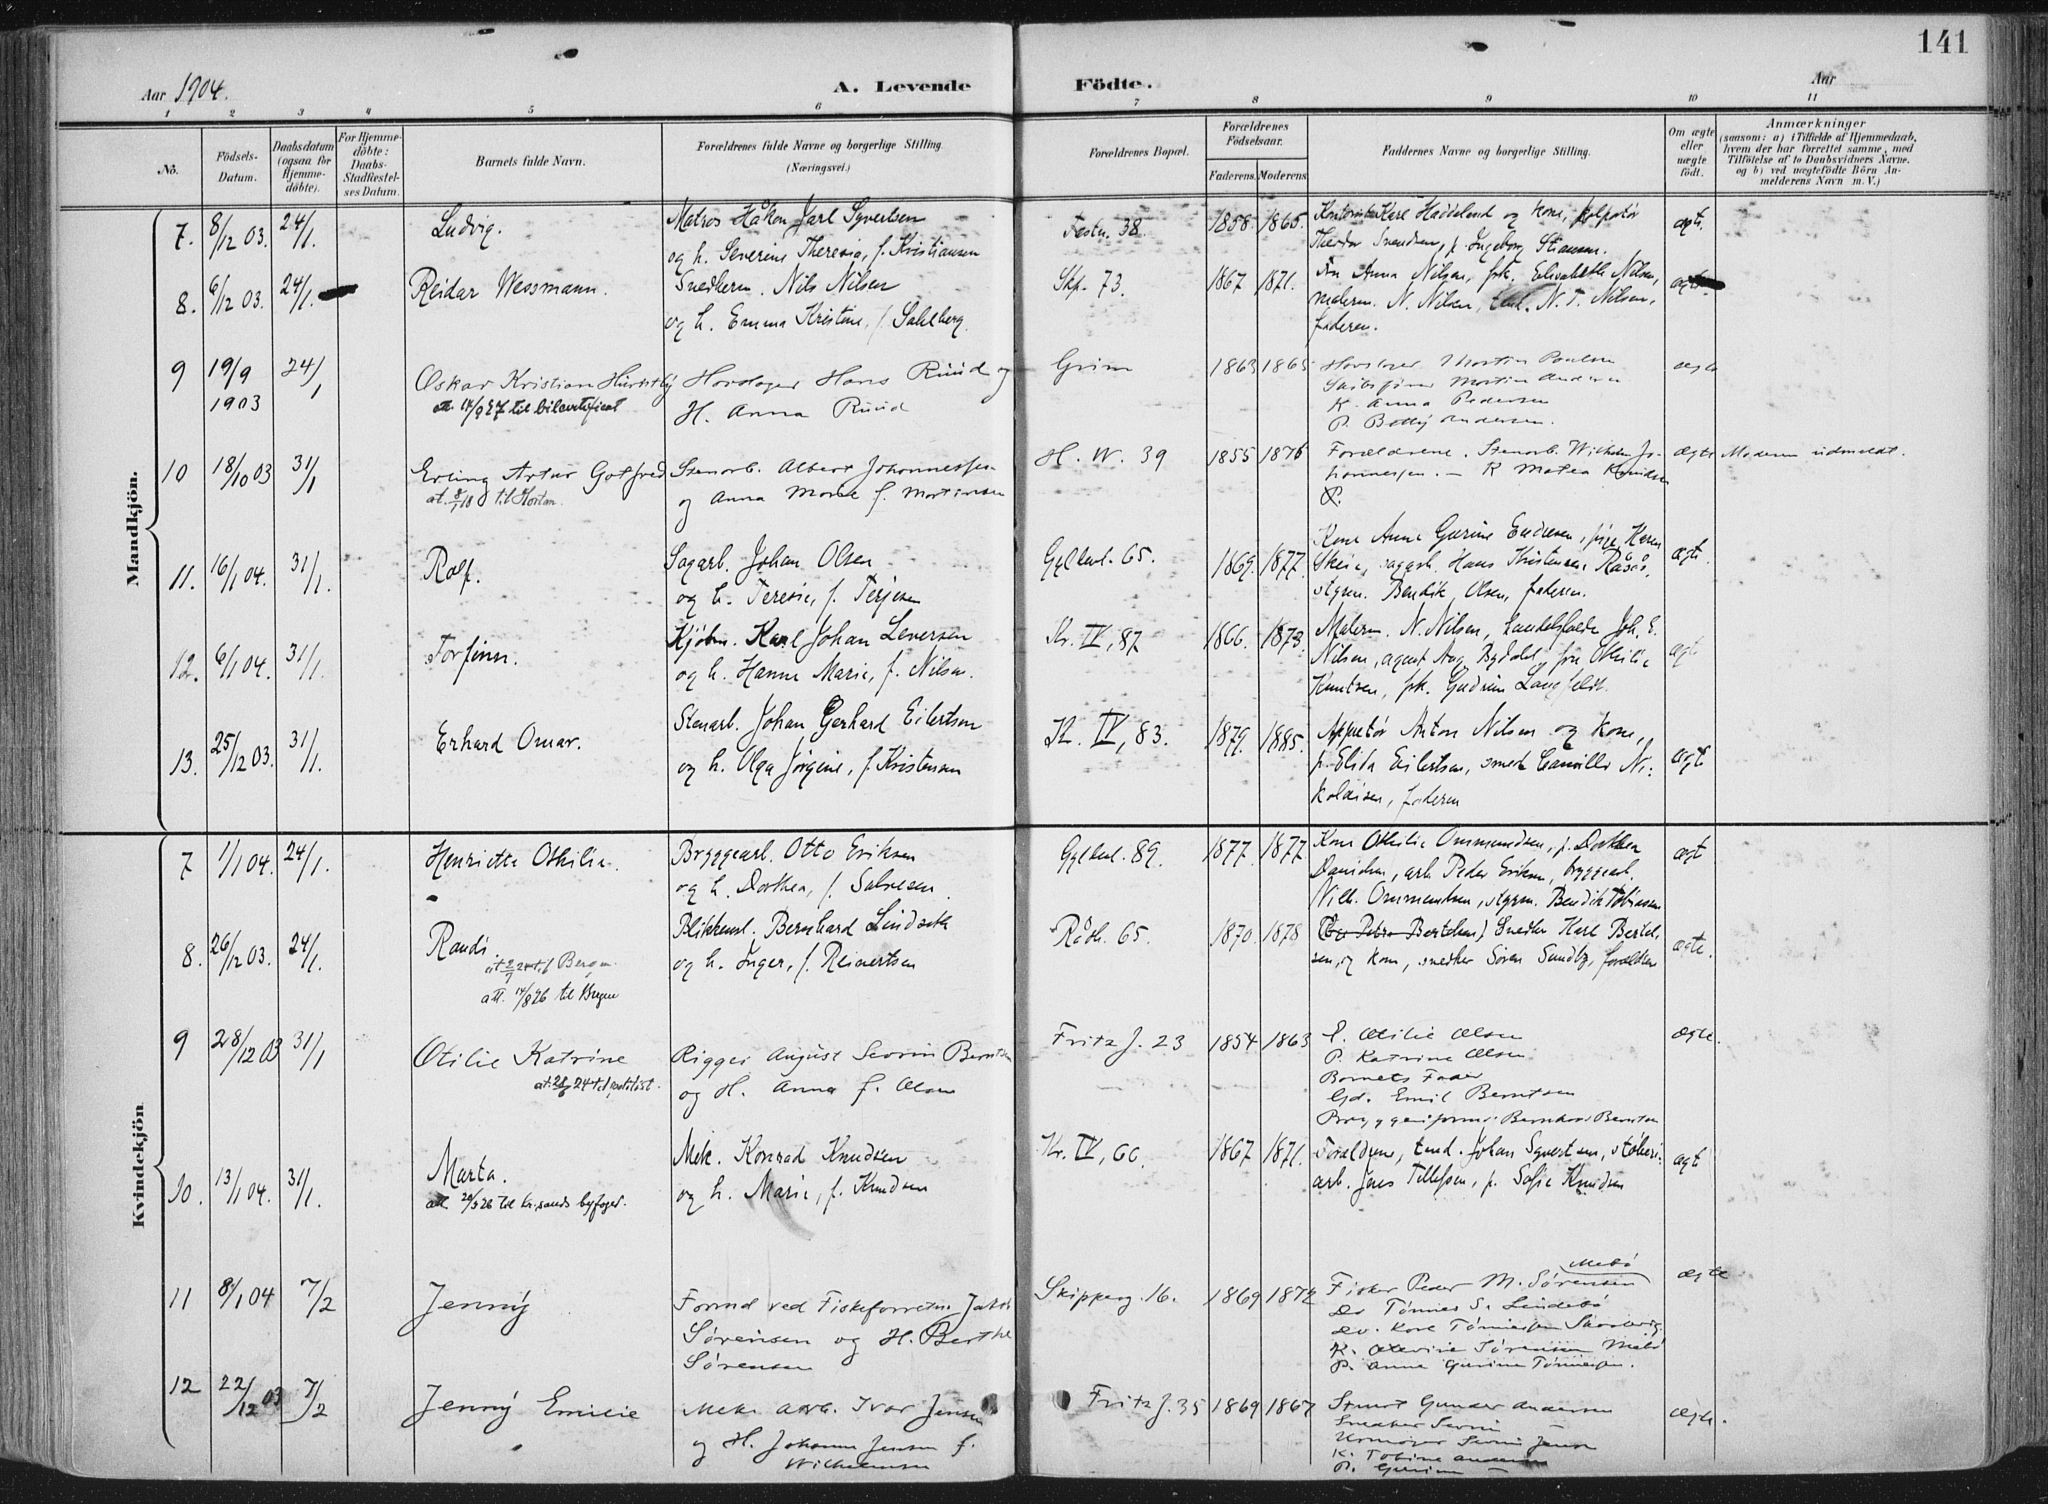 141
Aar 1904.
A. Levende Födte.
Aar
1 2 3 4 5 6 7 8 9 10 11
No.
Födsels-Datum.
Daabsdatum (ogsaa for Hjemme-döbte).
For Hjemme-döbte: Daabs-Stadfestel-ses Datum.
Barnets fulde Navn.
Forældrenes fulde Navne og borgerlige Stilling.
(Næringsvei.)
Forældrenes Bopæl.
Forældrenes Födselsaar.
Faderens. Moderens
Faddernes Navne og borgerlige Stilling.
Om ægte eller uægte födt.
Anmærkninger
(saasom: a) i Tilfælde af Hjemmedaab, hvem der har forrettet samme, med Tilföielse af to Daabsvidners Navne, og b) ved uægtefödte Börn An-melderens Navn m. V.)
Mandkjön.
7. 8/12 03. 24/1. Ludvig. Matros Håkon Jarl Syvertsen
og h. Severine Theresia, f. Kristiansen
Festn. 38. 1858. 1865. Karl Haddeland og kone,
Theodor Svendsen, p. Ingeborg
ægte.
8. 6/12 03. 24/1. Reidar Wessmann. Snedkerm. Nils Nilsen
og h. Emma Kristine, f. Sahlberg.
Skp. 73. 1867 1871. Fru Anna Nilsen, frk. Elisabeth Nilsen,
malerm. N. Nilsen, tand. N. T. Nilsen,
faderen.
9 19/9 1903 24/1 Oskar Kristian
att. 14/9 27 til bilcertificat
Hans Ruud og
H. Anna Ruud
Grim 1863 1865 Morten Paulsen
Morten Andersen
K. Anna Pedersen
P. Betty Andersen.
ægte
10 18/10 03 31/1 Erling Artur Gotfred
at. 8/1 18 til Horten.
Stenarb. Albert Johannessen
og Anna Marie f. Mortensen
H. W. 39 1855 1876 Forældrene. Stenarb. Wilhelm Jo-
hannessen. — K Matea Knudsen
P.
Ægte Moderen udmeldt.
11. 16/1 04. 31/1. Rolf. Sagarb. Johan Olsen
og h. Teresie, f. Terjesen
Gyldenl. 65. 1869. 1877. Kone Anne Gurine Endresen, pige Karen
Skeie, sagarb. Hans Kristensen Råsås,
styrm. Bendik Olsen, faderen.
ægte.
12. 6/1 04. 31/1. Torfinn. Kjøbm. Karl Johan Leversen
og h. Hanne Marie, f. Nilsen.
Kr. IV, 87 1866. 1873. Malerm. N. Nilsen, Joh. E.
Nilsen, agent Aug. Bydal, fru Othilie
Knutsen, frk. Gudrun Langfeldt.
ægt
13. 25/12 03. 31/1. Erhard Omar. Stenarb. Johan Gerhard Eilertsen
og h. Olga Jørgine, f. Kristensen
Kr. IV, 83. 1879. 1885. Appretør Anton Nilsen og kone,
p. Elida Eilertsen, smed Camillo Ni-
kolaisen, faderen
ægte
Kvindekjön
7 1/1 04. 24/1. Henriette Othilie. Bryggearb. Otto Eriksen
og h. Dorthea, f. Salvesen.
Gyldenl. 89. 1877. 1877 Kone Othilie Ommundsen, p. Dorthea
Danielsen, arb. Peder Eriksen, bryggearb.
Vilh. Ommundsen, styrm. Bendik Tobiassen
ægt
8. 26/12 03. 24/1. Randi
at 2/7 24 til Bergen.
att. 14/8 26 til Bergen
Blikkensl. Bernhard Lindseth
og h. Inger, f. Reinertsen
Rådh. 65. 1870. 1878 Petra Bertelsen) Snedker Karl Bertel-
sen, og kone, snedker Søren Sundby, forældrene
ægte.
9 28/12 03 31/1 Otilie Katrine
Rigger August Severin Berntsen
og H. Anna f. Olsen
Fritz J. 23 1854 1863 P. Otilie Olsen
P. Katrine Olsen
Barnets Fader
Gd. Emil Berntsen
Bernhard Berntsen
Ægte.
10. 13/1 04. 31/1. Marta.
att. 20/3 26 til Kr.sands byfoged.
Mek. Konrad Knudsen
og h. Marie, f. Knudsen
Kr. IV, 66. 1867 1871. Forældrene, tand. Johan Syvertsen, støberi-
arb. Jens Tellefsen, p. Sofie Knudsen
ægt
11 8/1 04 7/2 Jenny Formd ved Fiskeforretn. Jakob
Sørensen og H. Berthe
Sørensen
Skipperg. 16. 1869 1872 Fisker Peder M. Sørensen Mebø
Do Tønnes S. Lindebø
Do. Karl Tønnesen
K. Olevine Sørensen Mebø
P. Anne Gurine Tønnesen.
ægte
12 22/12 03 7/2 Jenny Emilie Mek. Arb. Ivar Jensen
og H. Johanne Jensen f.
Wilhelmsen
Fritz J. 35 1869 1867 Stuert Gunder Andersen
Snedker Severin —
Severin Jensen
K. Tobine Andersen
P. Gurine —
Ægte.